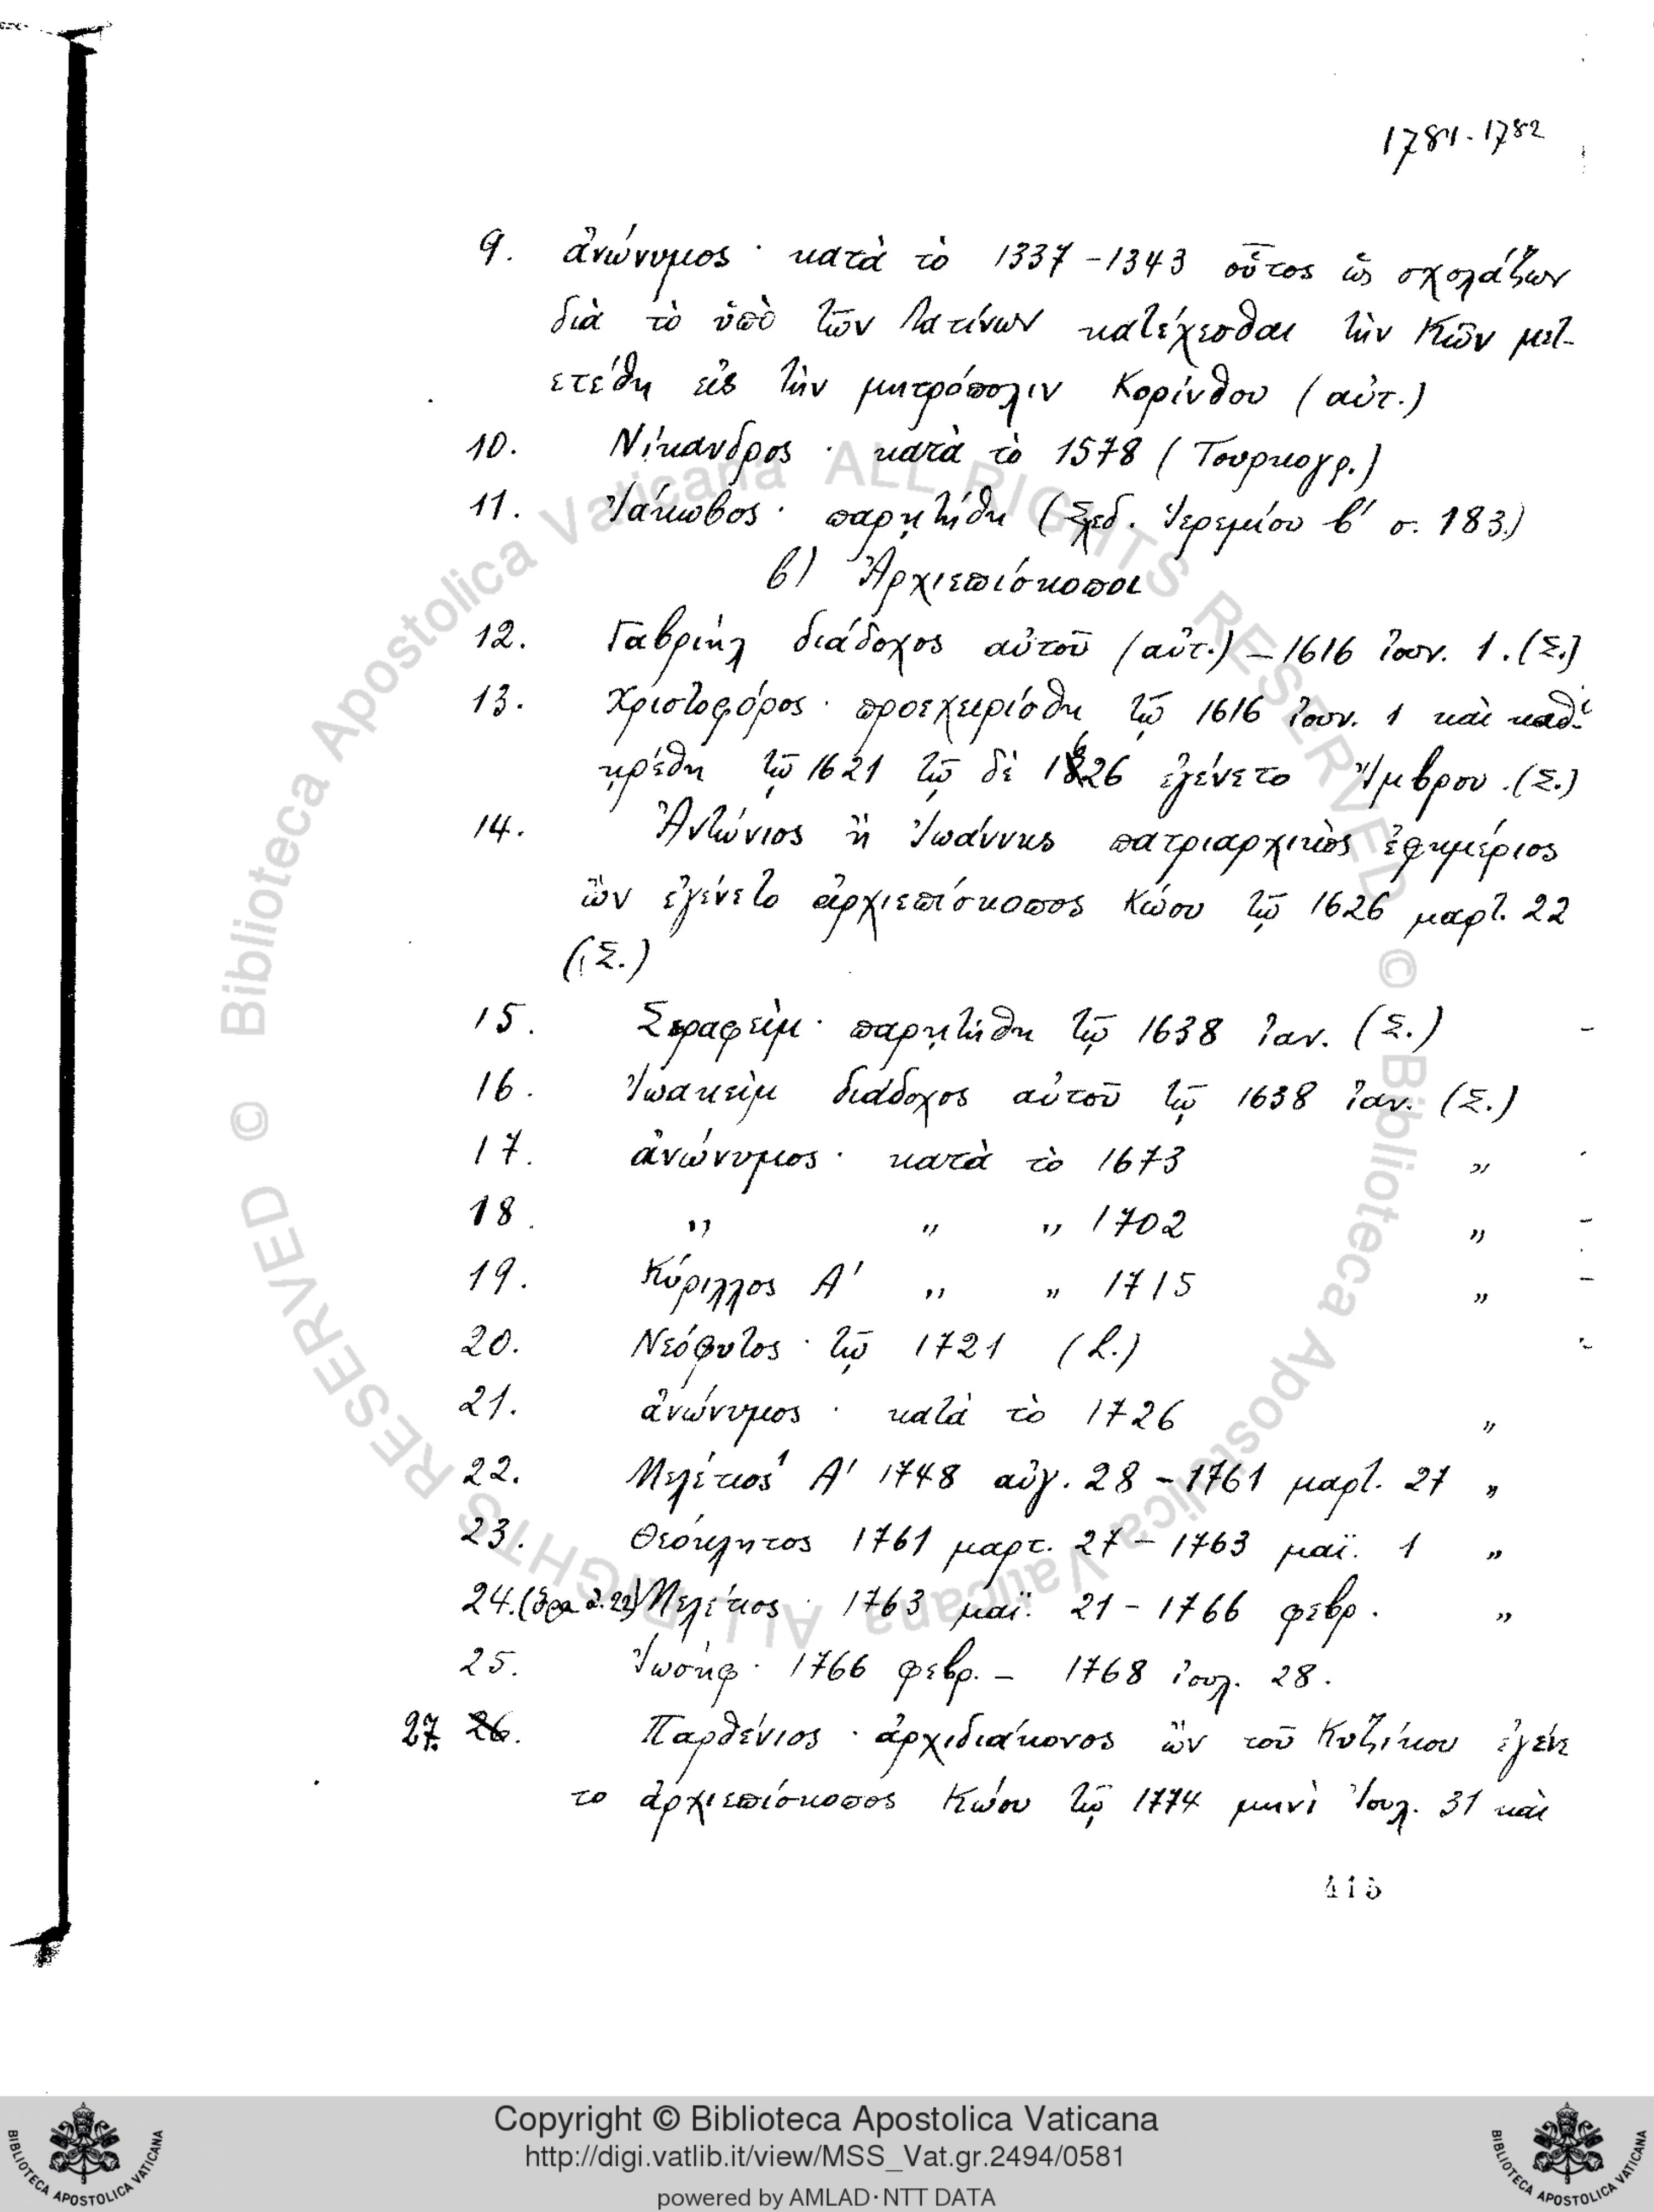 1781-1782
9. ἀνώνυμος · κατὰ τὸ 1337-1343 οὗτος ὡς σχολάζων
διὰ τὸ ὑπὸ τῶν Λατίνων κατέχεσθαι τὴν Κῶν μετ-
ετέθη εἰς τὴν μητρόπολιν Κορίνθου (αὐτ.)
10. Νίκανδρος · κατὰ τὸ 1578 (Τουρκογρ.)
11. Ἰάκωβος · παρῃτήθη (Σχεδ. Ἱερεμίου β' σ. 183.)
β) Ἀρχιεπίσκοποι
12. Γαβριὴλ διάδοχος αὐτοῦ (αὐτ.) — 1616 ἰουν. 1. (Σ.)
13. Χριστοφόρος · προεχειρίσθη τῷ 1616 ἰουν. 1 καὶ καθ-
ῃρέθη τῷ 1621 τῷ δὲ 1626 ἐγένετο Ἴμβρου. (Σ.)
14. Ἀντώνιος ἢ Ἰωάννης πατριαρχικὸς ἐφημέριος
ὢν ἐγένετο ἀρχιεπίσκοπος Κώου τῷ 1626 μαρτ. 22
(Σ.)
15. Σεραφεὶμ · παρῃτήθη τῷ 1638 ἰαν. (Σ.)
16. Ἰωακεὶμ διάδοχος αὐτοῦ τῷ 1638 ἰαν. (Σ.)
17. ἀνώνυμος · κατὰ τὸ 1673 „
18. „ „ „ 1702 „
19. Κύριλλος Α' „ „ 1715 „
20. Νεόφυτος · τῷ 1721 (L.)
21. ἀνώνυμος · κατὰ τὸ 1726 „
22. Μελέτιος Α' 1748 αὐγ. 28 - 1761 μαρτ. 27 „
23. Θεόκλητος 1761 μαρτ. 27 - 1763 μαϊ. 1 „
24. (ὅρα ἀ. 22) Μελέτιος · 1763 μαϊ. 21 - 1766 φεβρ. „
25. Ἰωσὴφ · 1766 φεβρ. - 1768 ἰουλ. 28.
27. 26. Παρθένιος · ἀρχιδιάκονος ὢν τοῦ Κυζίκου ἐγένε
το ἀρχιεπίσκοπος Κώου τῷ 1774 μηνὶ Ἰουλ. 31 καὶ
415
© Biblioteca Apostolica Vaticana ALL RIGHTS RESERVED © Biblioteca Apostolica Vaticana ALL RIGHTS RESERVED
Copyright © Biblioteca Apostolica Vaticana
http://digi.vatlib.it/view/MSS_Vat.gr.2494/0581
powered by AMLAD·NTT DATA
BIBLIOTECA APOSTOLICA VATICANA
BIBLIOTECA APOSTOLICA VATICANA